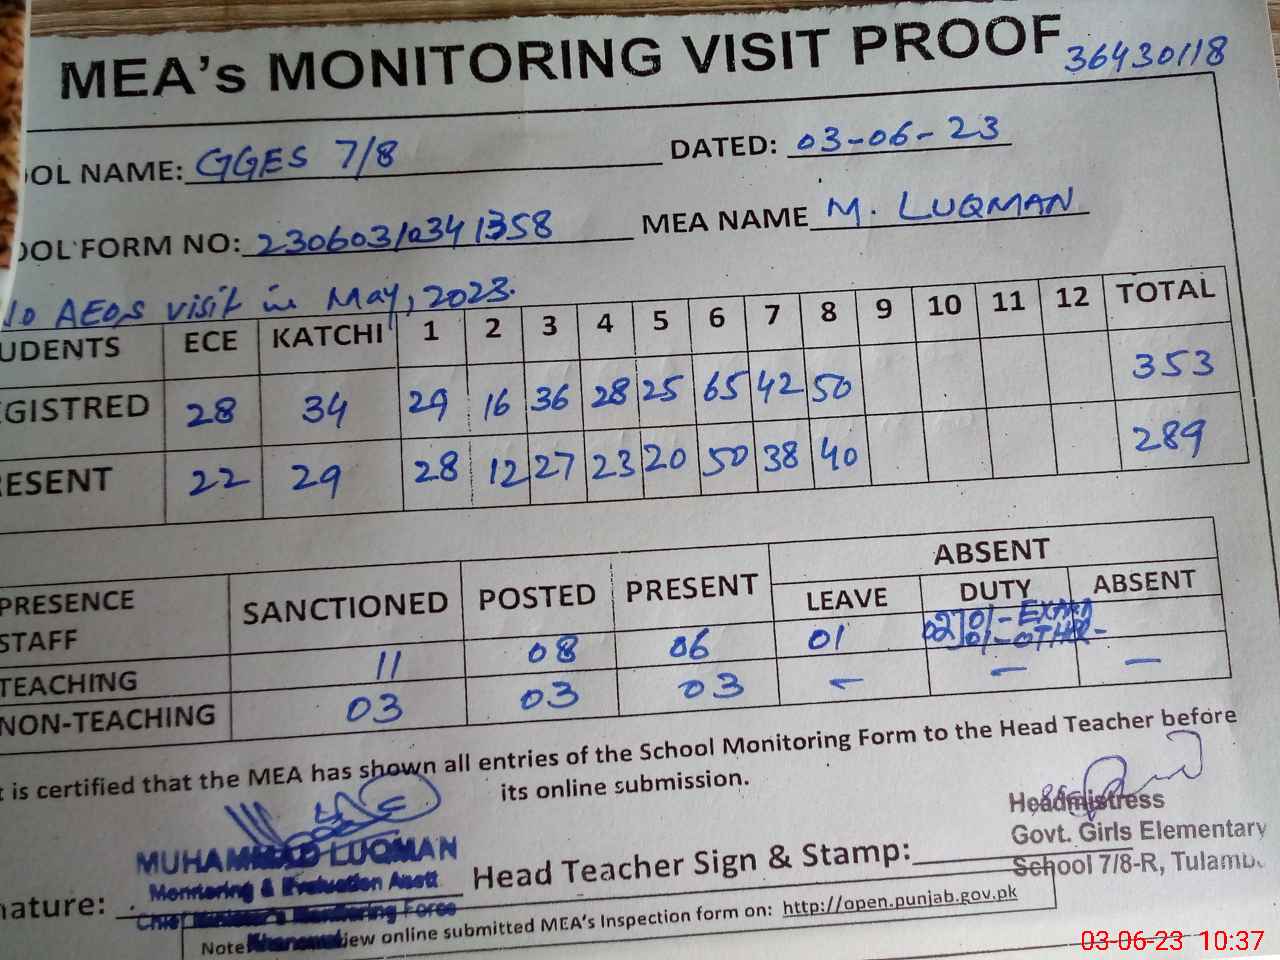 MEA's MONITORING VISIT PROOF
36430118
OOL NAME: GGES 7/8 DATED: 03-06-23
OOL FORM NO: 230603/0341358 MEA NAME M. LUQMAN
No AEOs visit in May, 2023.
UDENTS ECE KATCHI 1 2 3 4 5 6 7 8 9 10 11 12 TOTAL
EGISTRED 28 34 29 16 36 28 25 65 42 50 353
RESENT 22 29 28 12 27 23 20 50 38 40 289
PRESENCE STAFF SANCTIONED POSTED PRESENT ABSENT
LEAVE DUTY ABSENT
TEACHING 11 08 06 01 02 01-EXAM 01-OTHR-
NON-TEACHING 03 03 03 – – –
t is certified that the MEA has shown all entries of the School Monitoring Form to the Head Teacher before
its online submission.
MUHAMMAD LUQMAN
Monitoring & Evaluation Asstt
Chief Minister's Monitoring Force
nature:
Head Teacher Sign & Stamp:
Headmistress
Govt. Girls Elementary
School 7/8-R, Tulamba
Note iew online submitted MEA's Inspection form on: http://open.punjab.gov.pk
03-06-23 10:37